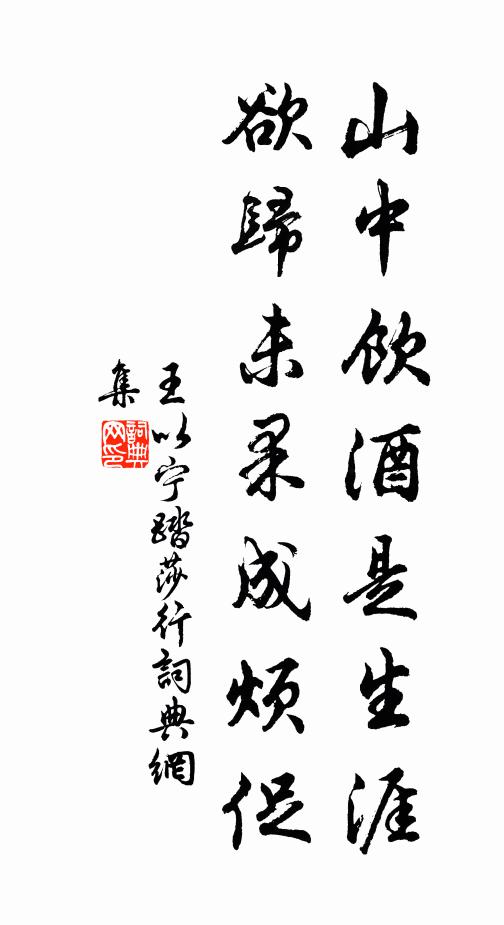 山中飲酒是生涯
欲歸未果成煩促
王以宁踏莎行詞典網
集
詞典
网印